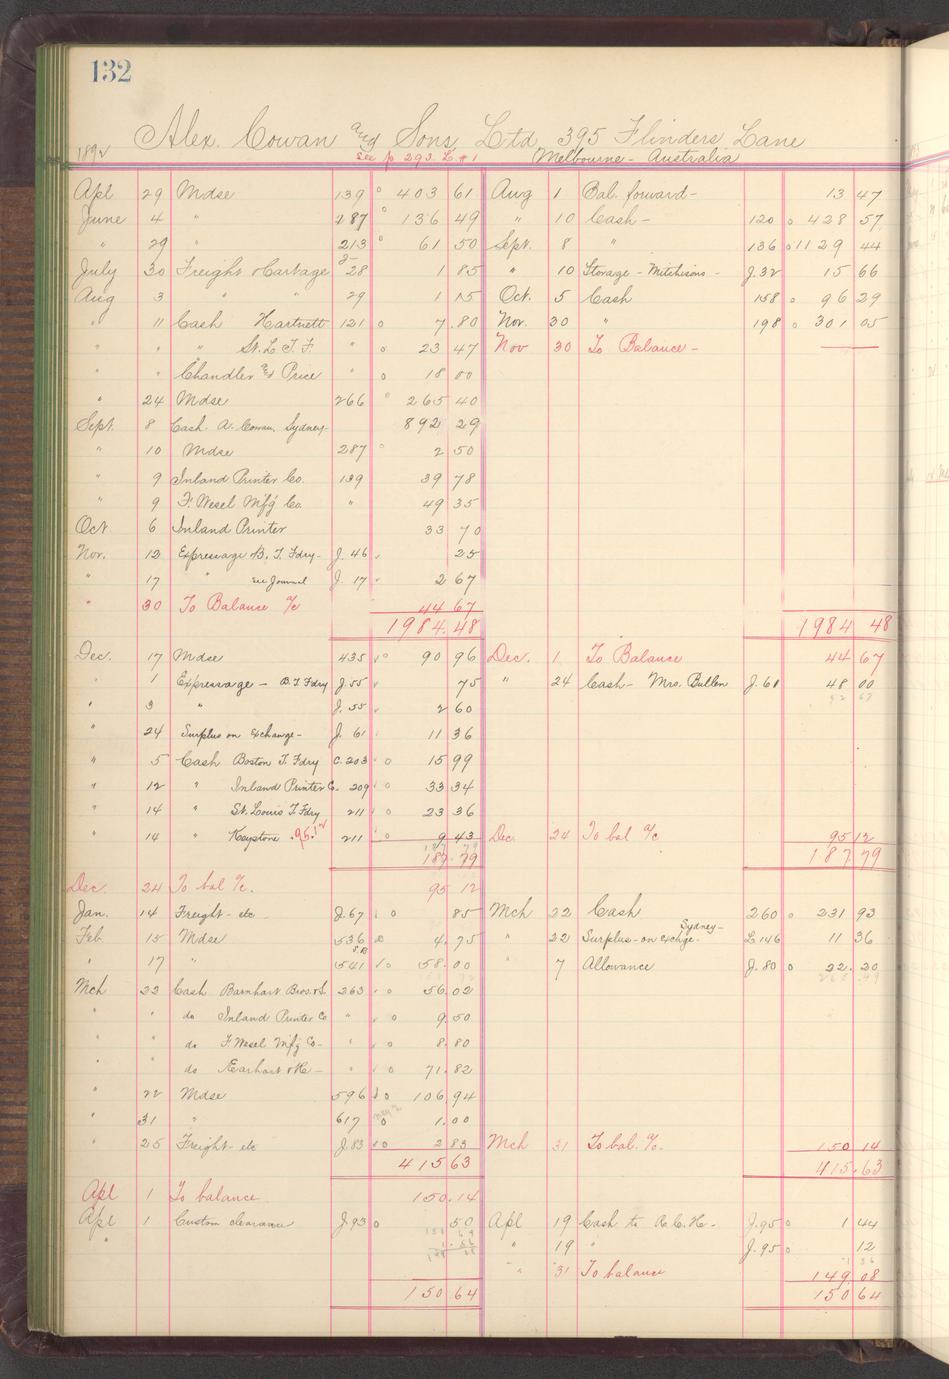 132
Alex. Cowan and Sons, Ltd, 395 Flinders Lane
1892 See p 293. L # 1 Melbourne - Australia
Apl 29 Mdse 139 403 61 Aug 1 Bal. forward- 13 47
June 4 " 187 136 49 " 10 Cash- 120 428 57
" 29 " 213 61 50 Sept. 8 " 136 1129 44
July 30 Freight & Cartage J- 28 1 85 " 10 Storage - Mitchisons - J.32 15 66
Aug 3 " " 29 1 15 Oct. 5 Cash 158 96 29
" 11 Cash Hartnett 121 7.80 Nov. 30 " 198 301 05
" " " St. L. T. F. " 23 47 Nov 30 To Balance -
" " Chandler & Price " 18 00
" 24 Mdse 266 265 40
Sept. 8 Cash. A. Cowan, Sydney- 892 29
" 10 Mdse 287 2 50
" 9 Inland Printer Co. 139 39 78
" 9 F. Wesel M'f'g Co. " 49 35
Oct. 6 Inland Printer 33 70
Nov. 12 Expressage B. T. Fdry- J. 46 25
" 17 " see Journal J. 17 2 67
" 30 To Balance a/c 44 67
1984.48 1984 48
Dec. 17 Mdse 435 90 96 Dec. 1 To Balance 44 67
" 1 Expressage - B.T Fdry J.55 75 " 24 Cash- Mrs. Bullen J.61 48 00
" 3 " J.55 2 60
" 24 Surplus on exchange- J. 61 11 36
" 5 Cash Boston T. Fdry C.203 15 99
" 12 " Inland Printer Co. 209 33 34
" 14 " St. Louis T. Fdry 211 23 36
" 14 " Keystone 95.12 211 9 43 Dec. 24 To bal a/c 95 12
187.79 187 79
Dec. 24 To bal a/c. 95 12
Jan. 14 Freight- etc J.67 85 Mch 22 Cash 260 231 93
Feb. 15 Mdse 536 4.75 " 22 Surplus-on exchge. Sydney- L 146 11 36
" 17 " 541 58.00 " 7 Allowance J.80 22.20
Mch 22 Cash Barnhart Bros. & S. 263 56.02
" " do Inland Printer Co " 9.50
" " do F. Wesel Mf'g Co- " 8.80
" " do Earhart & Co- " 71.82
" 22 Mdse 596 106.94
" 31 " 617 1.00
" 25 Freight- etc J.83 2 83 Mch 31 To bal. a/c. 150 14
415 63 415.63
Apl 1 To balance 150.14
Apl 1 Custom clearance J.93 50 Apl 19 Cash to J.95 1 44
" " 19 " J.95 12
" 31 To balance 149.08
150 64 150 64